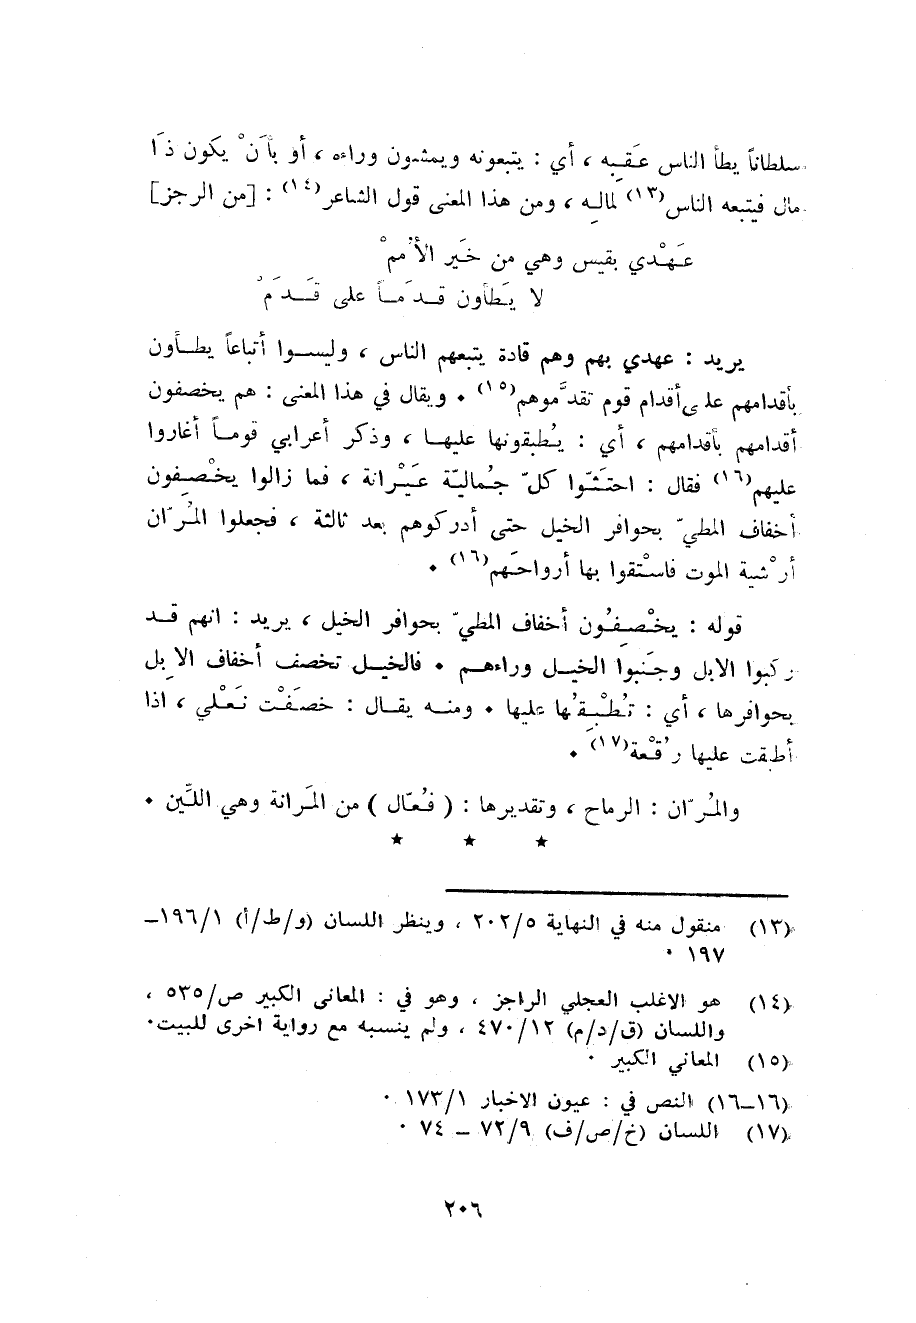 سلطاناً يطأ الناس عَقِبه ، أي : يتبعونه ويمشون وراءه ، أو بأَنْ يكون ذَا
مال فيتبعه الناس(١٣) لمالِه ، ومن هذا المعنى قول الشاعر(١٤) : [من الرجز]
عَهْدي بقيس وهي من خَير الأُممْ
لا يَطأون قَدَماً على قَدَمْ
يريد : عهدي بهم وهم قادة يتبعهم الناس ، وليسوا أتباعاً يطأون
بأقدامهم على أقدام قوم تقدَّموهم(١٥) ٠ ويقال في هذا المعنى : هم يخصفون
أقدامهم بأقدامهم ، أي : يُطبقونها عليها ، وذكر أعرابي قوماً أغاروا
عليهم(١٦) فقال : احتَثّوا كلّ جُماليّة عَيْرانة ، فما زالوا يخْصِفون
أخفاف المطيّ بحوافر الخيل حتى أدركوهم بعد ثالثة ، فجعلوا المُرّان
أرْشية الموت فاستْقوا بها أرواحَهم(١٦) ٠
قوله : يخْصِفُون أخفاف المطيّ بحوافر الخيل ، يريد : انهم قد
ركبوا الابل وجَنَبوا الخيل وراءهم ٠ فالخيل تخصف أخفاف الابِل
بحوافرها ، أي : تُطْبِقُها عليها ٠ ومنه يقال : خصَفْت نَعْلي ، اذا
أطبَقت عليها رُقْعة(١٧) ٠
والمُرّان : الرماح ، وتقديرها : ( فُعّال ) من المَرانة وهي اللّين ٠
★ ★ ★
(١٣) منقول منه في النهاية ٢٠٢/٥ ، وينظر اللسان (و/ط/أ) ١٩٦/١_
١٩٧ ٠
(١٤) هو الاغلب العجلي الراجز ، وهو في : المعاني الكبير ص/٥٣٥ ،
واللسان (ق/د/م) ٤٧٠/١٢ ، ولم ينسبه مع رواية اخرى للبيت٠
(١٥) المعاني الكبير ٠
(١٦_١٦) النص في : عيون الاخبار ١٧٣/١ ٠
(١٧) اللسان (خ/ص/ف) ٧٢/٩ _ ٧٤ ٠
٢٠٦